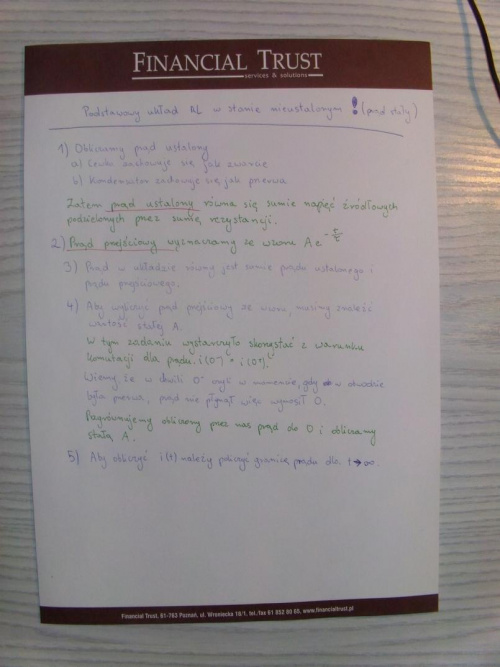 FINANCIAL TRUST
services & solutions
Podstawowy układ RL w stanie nieustalonym ! (prąd stały)
1) Obliczamy prąd ustalony
a) Cewka zachowuje się jak zwarcie
b) Kondensator zachowuje się jak przerwa
Zatem prąd ustalony równa się sumie napięć źródłowych
podzielonych przez sumię rezystancji.
2) Prąd przejściowy wyznaczamy ze wzoru A e
3) Prąd w układzie równy jest sumie prądu ustalonego i
prądu przejściowego.
4) Aby wyliczyć prąd przejściowy ze wzoru, musimy znaleźć
wartość stałej A.
W tym zadaniu wystarczyło skorzystać z warunku
komutacji dla prądu. i(0⁻) = i(0⁺)
Wiemy, że w chwili 0⁻ czyli w momencie, gdy w obwodzie
była przerwa, prąd nie płynął więc wynosił 0.
Przyrównujemy obliczony przez nas prąd do 0 i obliczamy
stałą A.
5) Aby obliczyć i(t) należy policzyć granicę prądu dla t→∞
Financial Trust, 61-763 Poznań, ul. Wroniecka 18/1, tel./fax 61 852 80 65, www.financialtrust.pl